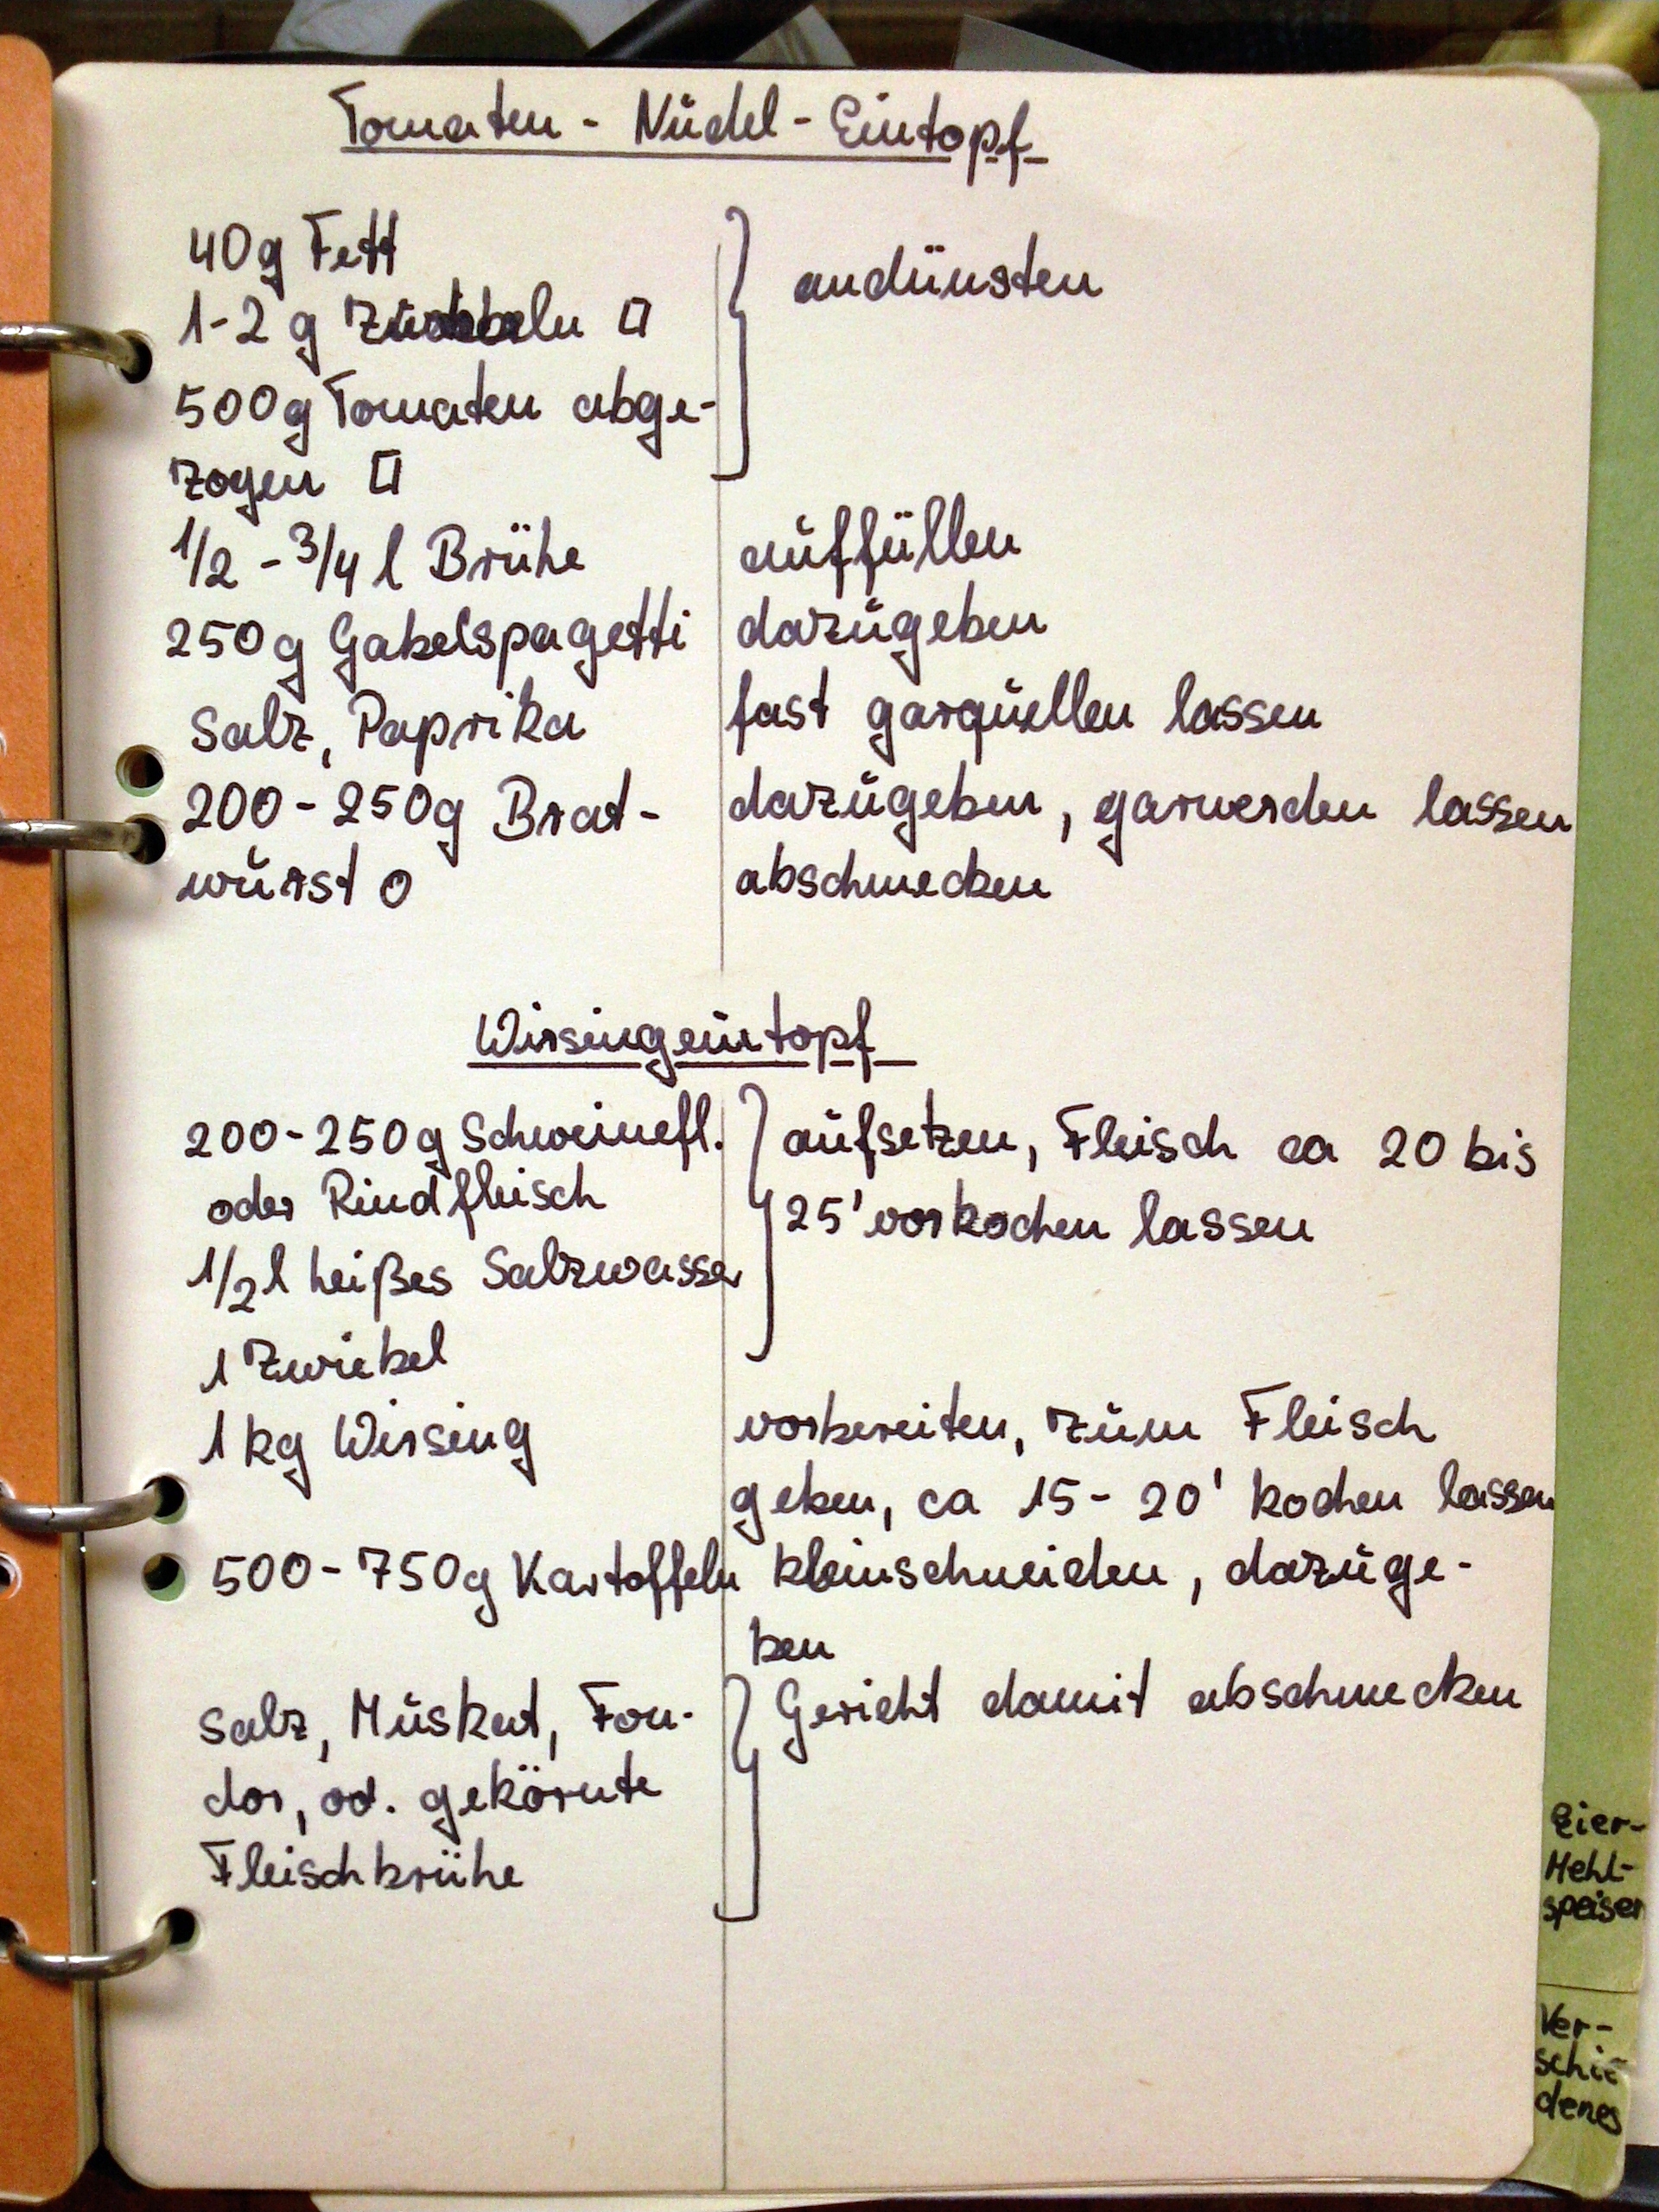 Tomaten - Nudel - Eintopf
40g Fett
1-2 g Zwiebeln □
andünsten
500g Tomaten abge-
zogen □
1/2 - 3/4 l Brühe
auffüllen
250g Gabelspagetti
dazugeben
Salz, Paprika
fast garquellen lassen
200 - 250g Brat-
dazugeben, garwerden lassen
wurst o
abschmecken
Wirsingeintopf
200 - 250g Schweinefl.
aufsetzen, Fleisch ca 20 bis
oder Rindfleisch
25' vorkochen lassen
1/2 l heißes Salzwasser
1 Zwiebel
1 kg Wirsing
vorbereiten, zum Fleisch
geben, ca 15 - 20' kochen lassen
500 - 750g Kartoffeln
kleinschneiden, dazuge-
ben
Salz, Muskat, Fon-
Gericht damit abschmecken
dor, od. gekörnte
Fleischbrühe
Eier-
Mehl-
speisen
Ver-
schie
denes